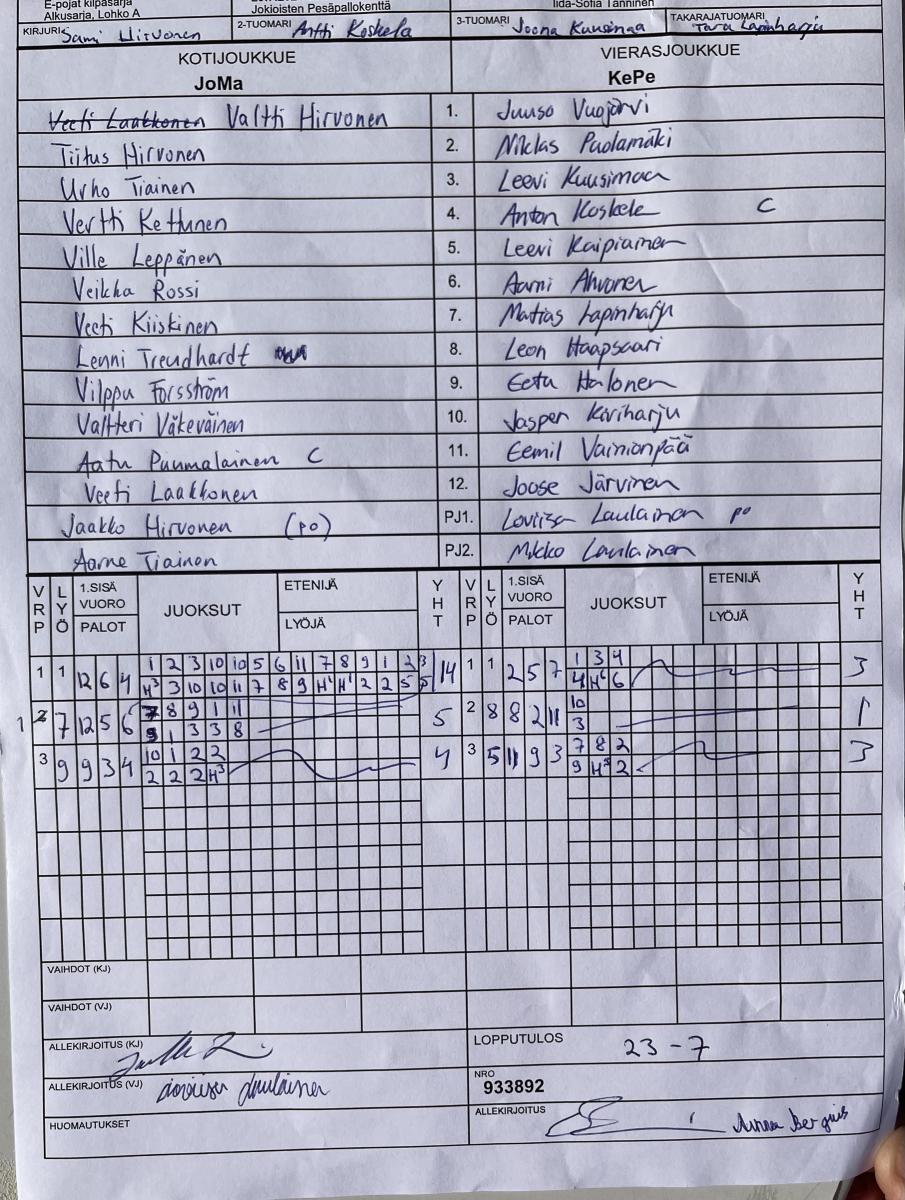 E-pojat kilpasarja
Alkusarja, Lohko A
Jokioisten Pesäpallokenttä
Iida-Sofia Tanninen
KIRJURI Sami Hirvonen
2-TUOMARI Antti Koskela
3-TUOMARI Joona Kuusimaa
TAKARAJATUOMARI Lapinharju
KOTIJOUKKUE VIERASJOUKKUE
JoMa KePe
Veeti Laakkonen Valtti Hirvonen 1. Juuso Vuojärvi
Tiitus Hirvonen 2. Niklas Puolamäki
Urho Tiainen 3. Leevi Kuusimaa
Vertti Kettunen 4. Anton Koskela C
Ville Leppänen 5. Leevi Kaipiainen
Veikka Rossi 6. Aarni Ahvonen
Veeti Kiiskinen 7. Matias Lapinharju
Lenni Treudhardt 8. Leon Haapsaari
Vilppu Forsström 9. Eetu Halonen
Valtteri Väkeväinen 10. Jasper Koriharju
Aatu Puumalainen C 11. Eemil Vainionpää
Veeti Laakkonen 12. Joose Järvinen
Jaakko Hirvonen (po) PJ1. Loviisa Laulainen po
Aarne Tiainen PJ2. Mikko Laulainen
VRP LYÖ 1.SISÄ VUORO PALOT JUOKSUT ETENIJÄ LYÖJÄ YHT VRP LYÖ 1.SISÄ VUORO PALOT JUOKSUT ETENIJÄ LYÖJÄ YHT
1 1 12 6 4 1 2 3 10 10 5 6 11 7 8 9 1 2 3 14 1 1 2 5 7 1 3 4 3
H³ 3 10 10 11 7 8 9 H⁴ H¹ 2 2 5 5 4 H⁶ 6
1 2 7 12 5 6 7 8 9 1 11 5 2 8 8 2 11 10 1
9 1 3 3 8 3
3 9 9 3 4 10 1 2 2 4 3 5 11 9 3 7 8 2 3
2 2 2 H³ 9 H⁵ 2
VAIHDOT (KJ)
VAIHDOT (VJ)
ALLEKIRJOITUS (KJ) LOPPUTULOS 23 - 7
ALLEKIRJOITUS (VJ) Loviisa Laulainen NRO
933892
HUOMAUTUKSET ALLEKIRJOITUS